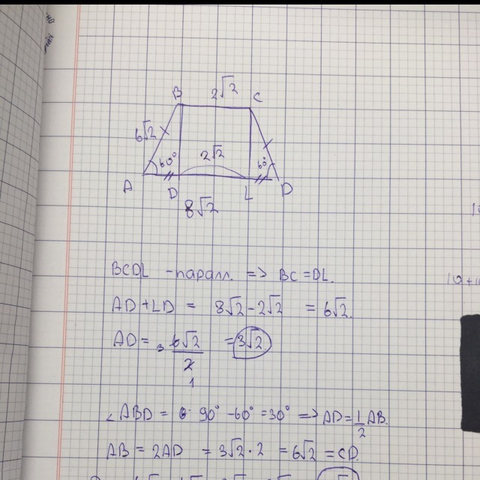 2√2
B C
6√2
60° 2√2 60°
A D L D
8√2
BCDL - паралл. => BC = DL.
AD + LD = 8√2 - 2√2 = 6√2.
AD = 6√2/2 = 3√2
∠ABD = 90° - 60° = 30° => AD = 1/2 AB.
AB = 2AD = 3√2 · 2 = 6√2 = CD.